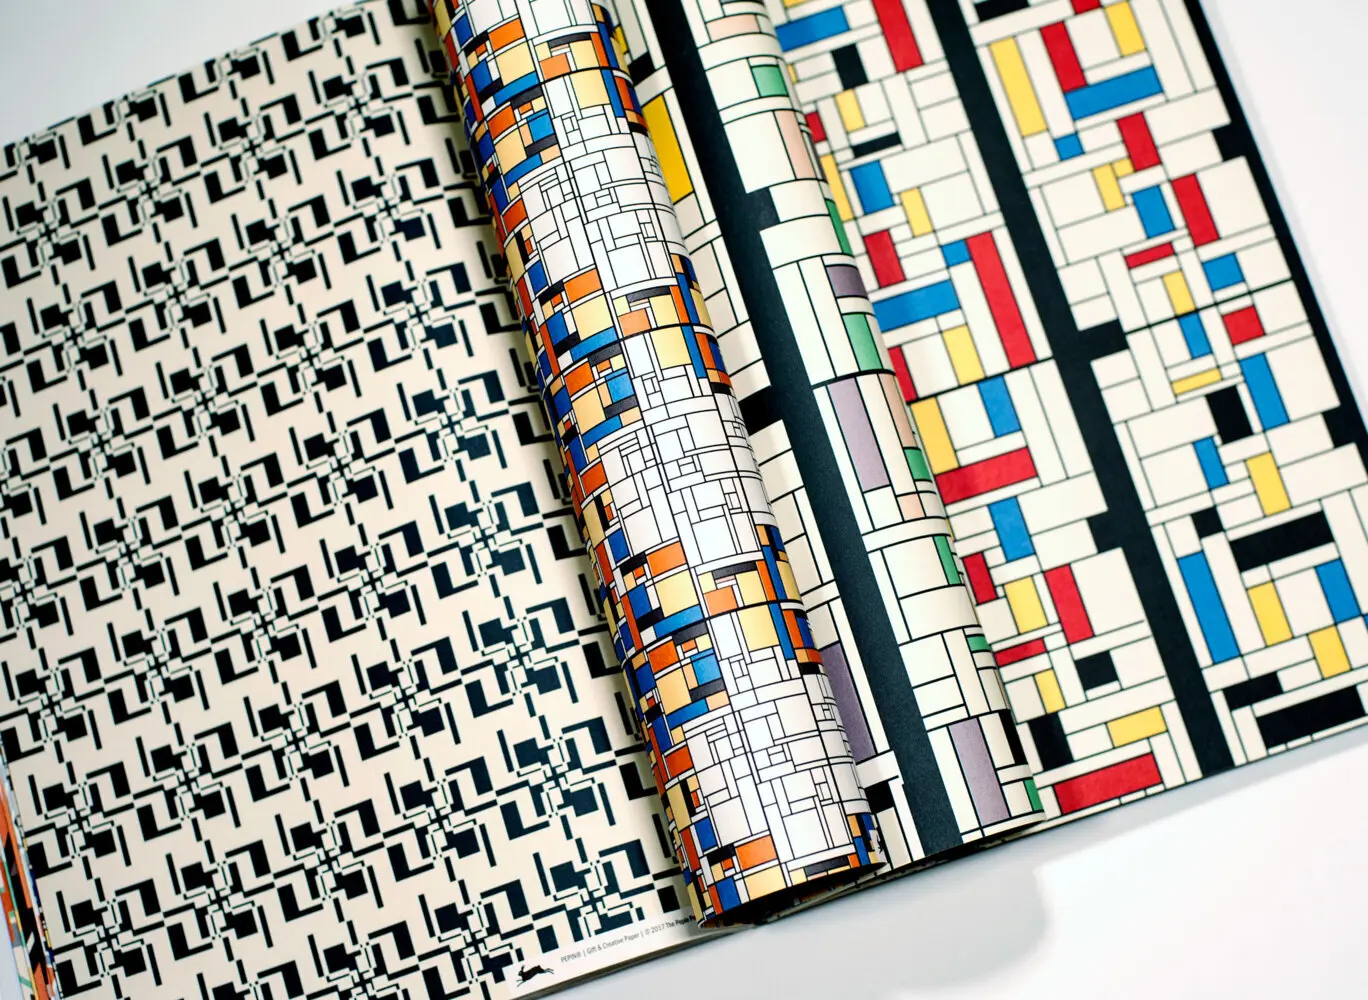 PEPIN® | Gift & Creative Paper | © 2017 The Pepin